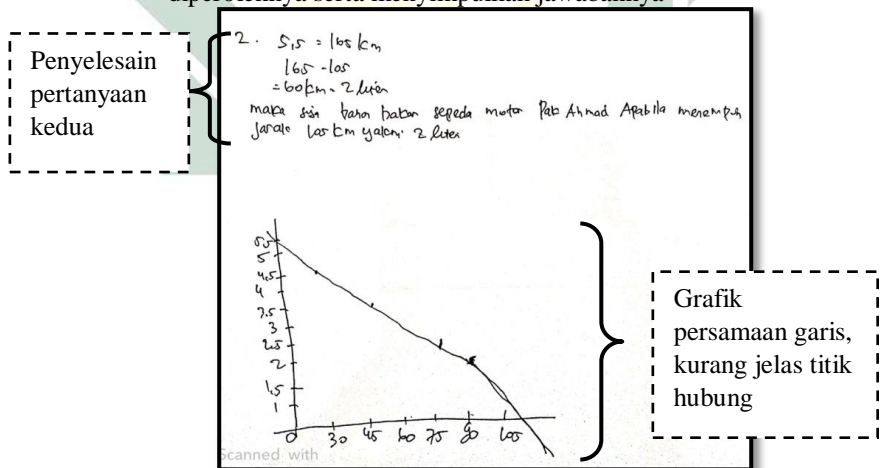 diperolehnya serta menyimpulkan jawabannya
Penyelesain
pertanyaan
kedua
2. 5,5 = 165 km
165 - 105
= 60 km = 2 liter
maka sisa bahan bakar sepeda motor Pak Ahmad Apabila menempuh
jarak 105 km yakni 2 liter
5,5
5
4,5
4
3.5
3
2,5
2
1,5
1
0 30 45 60 75 90 105
Grafik
persamaan garis,
kurang jelas titik
hubung
Scanned with